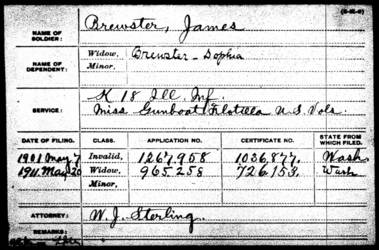 (3-15-8)
NAME OF SOLDIER: Brewster, James
NAME OF DEPENDENT: Widow, Brewster - Sophia
Minor,
SERVICE: K 18 Ill. Inf.
Miss Gunboat Flotilla U.S. Vols.
DATE OF FILING. CLASS. APPLICATION NO. CERTIFICATE NO. STATE FROM WHICH FILED.
1901 May 7 Invalid, 1267,958 1036,877. Wash.
1911 May 20 Widow, 965258 726,153. Wash
Minor,
ATTORNEY: W. J. Sterling.
REMARKS: